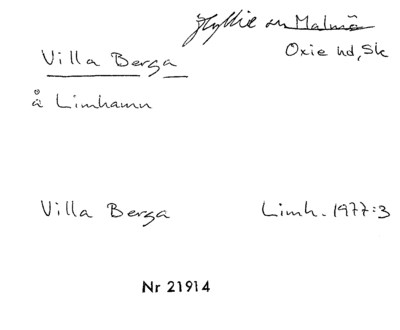 Hyllie sn Malmö
Oxie hd, Sk
Villa Berga
å Limhamn
Villa Berga Limh. 1977:3
Nr 21914